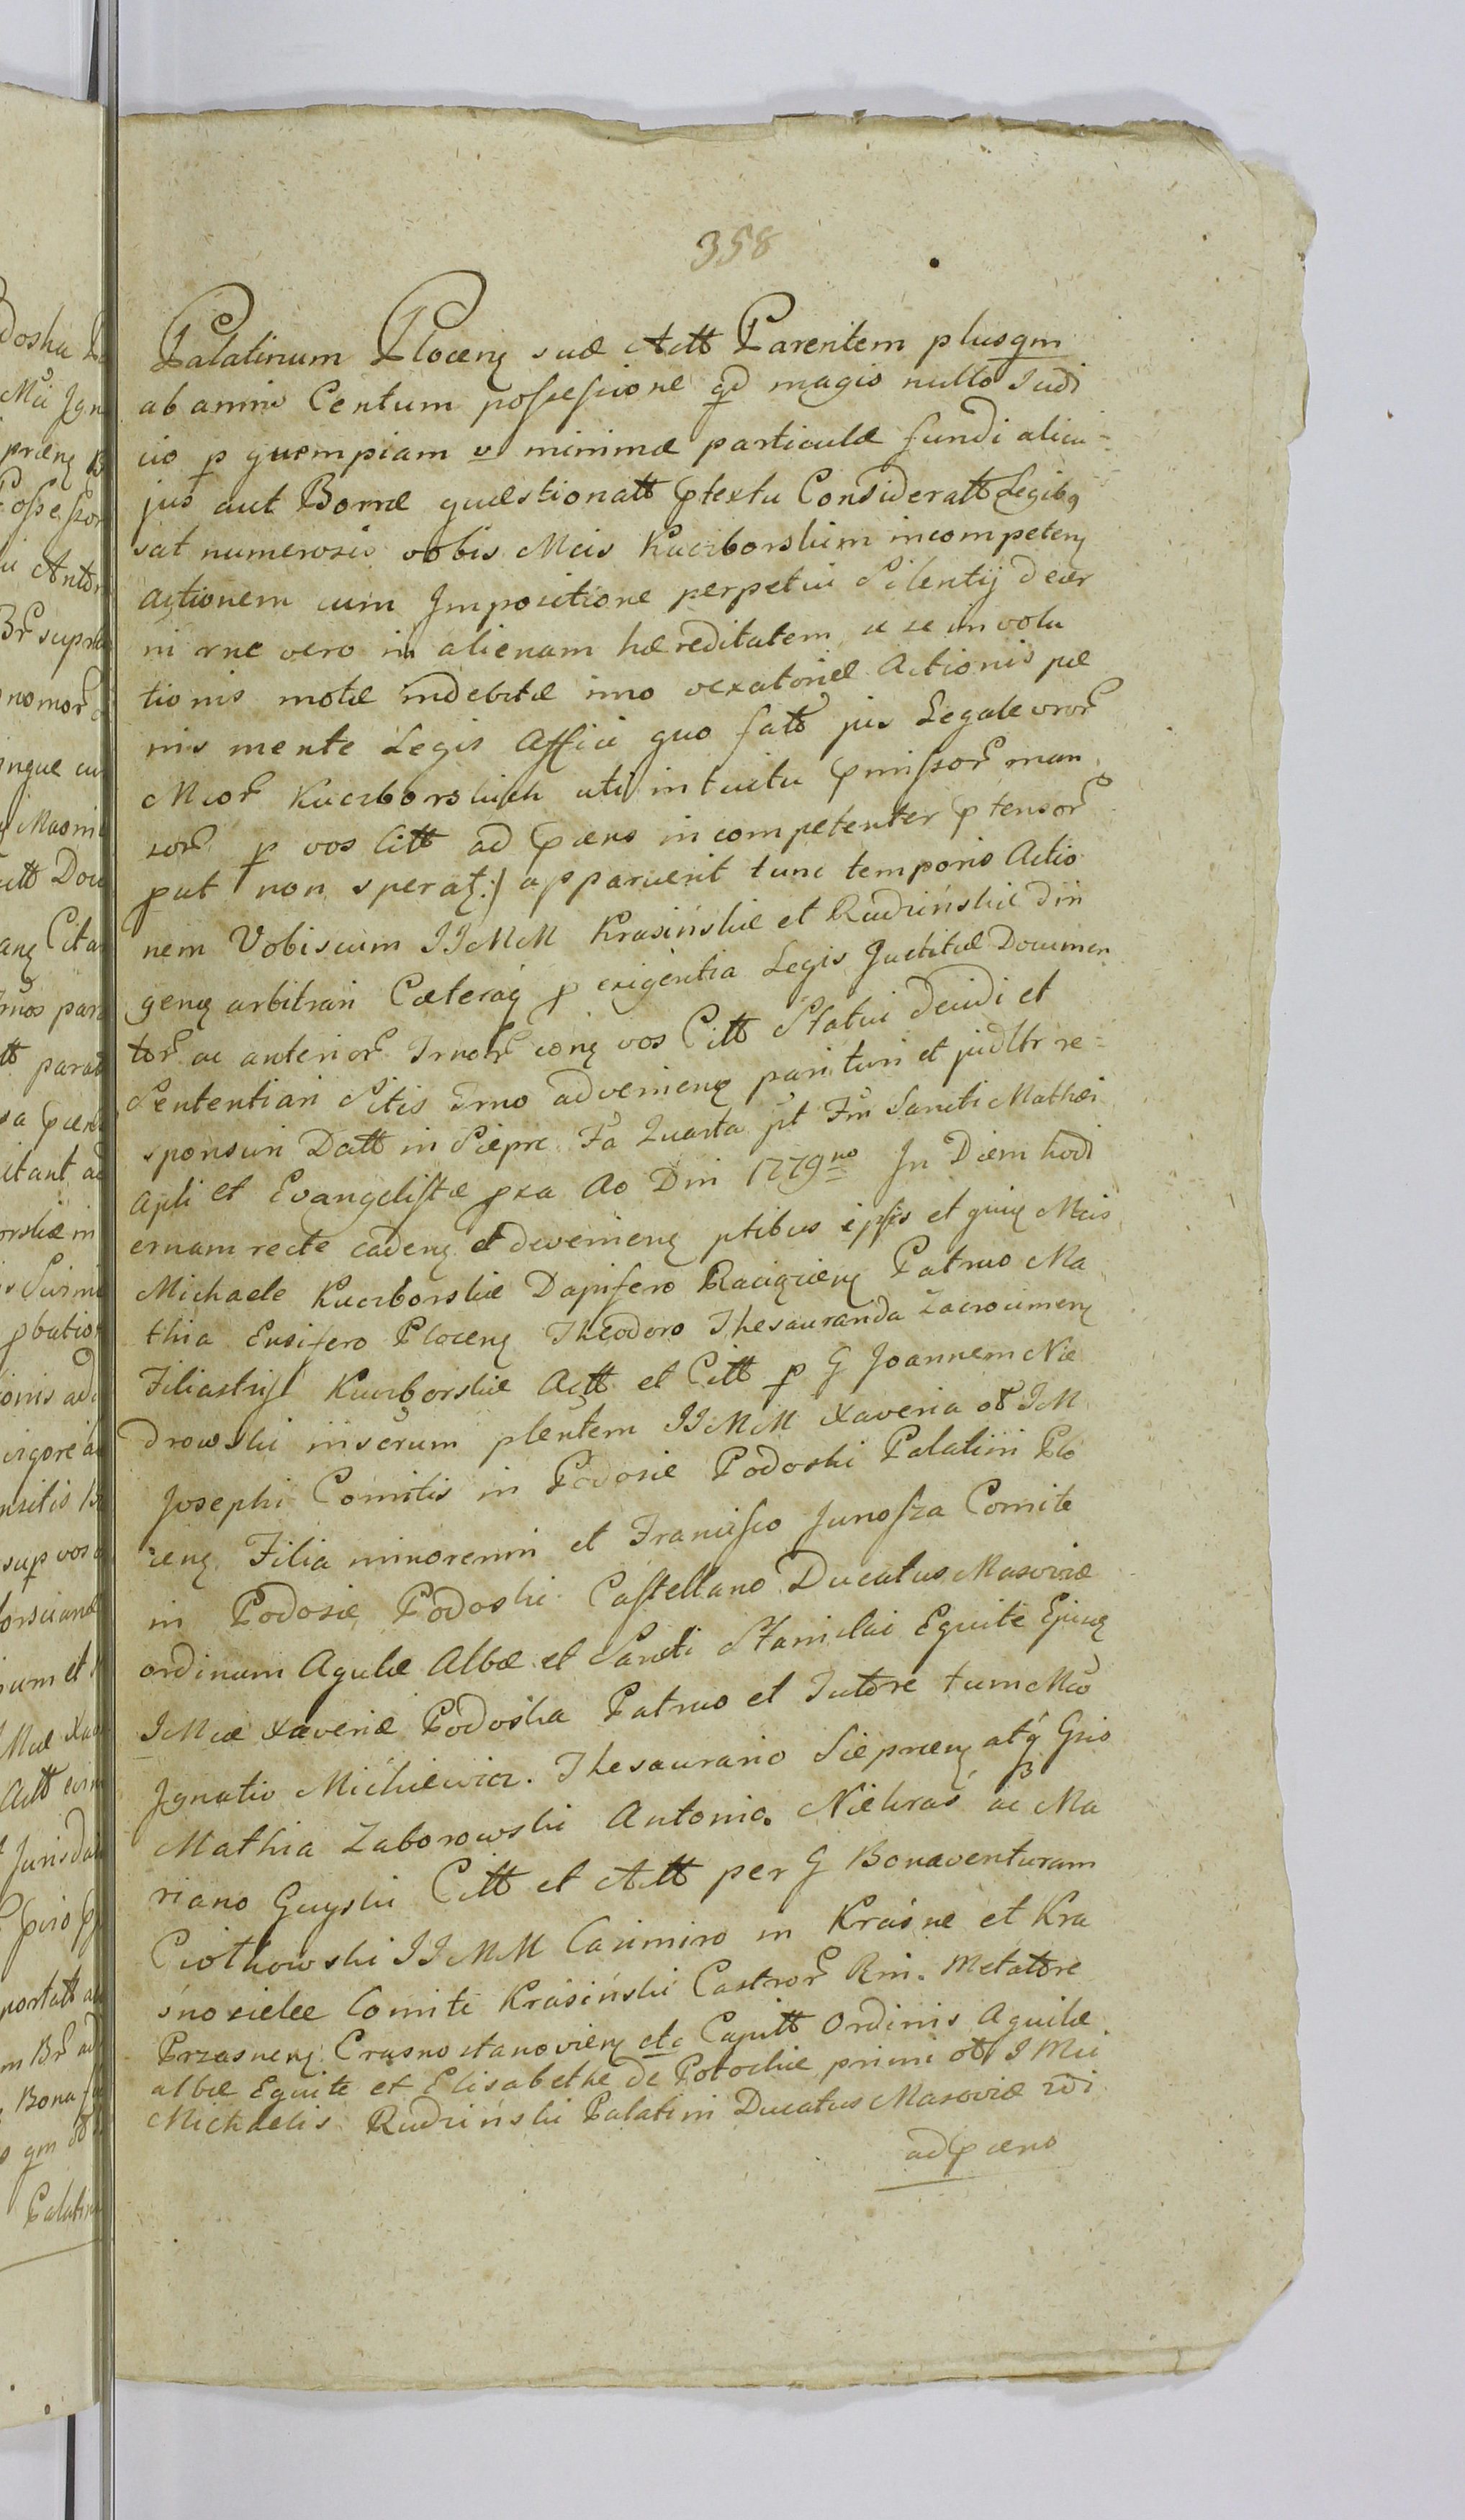 358
Palatinum Ploceng suæ Actt Parentem plusqm
ab annis Centum possessione qd magis nullo Judi
cio p quempiam v minimæ particulæ fundi alicu=
jus aut Borræ quæstionatt ptextu Consideratt Legibq
sat numerosis vobis Mcis Kuczborskim incompeteng
actionem cum Impositione perpetui Silentij decer
ni vne vero in alienam hæreditatem se se involu
tionis motæ indebitæ imo vexatoriæ Actionis pæ
nis mente Legis Affici quo fatt jus Legale vror
Mcor Kuczborskich uti intuitu pmissor man
sor p vos Citt ad pæns incompetenter ptensor
put non sperat:) apparuerit tunc temporis Actio
nem Vobiscum JJMM Krasińskie et Rudzińskie diri
geng arbitrari Cæteraq p exigentia Legis Justitiæ Documen
tor ac anterior Trnotr cong vos Citt Statui decidi et
Sententiari Sitis Trno advenieng parituri et judltr re=
sponsuri Datt in Siepre Fa Quarta pt Fm Sancti Mathæi
Apli et Evangelistæ pxa Ao Dni 1779no In Diem hodi
ernam recte cadeng et devenieng ptibus ipsis et quig Mcis
Michaele Kuczborskie Dapifero Raciązieng Patruo Ma
thia Ensifero Ploceng Theodoro Thesauranda Zacrocimeng
Filiastrist Kuczborskie Actt et Citt p G Joannem Nie
drowski inserum plentem JJMM Xaveria ol JM
Josephi Comitis in Podosie Podoski Palatini Plo
ceng Filia minorenni et Francisco Junosza Comite
in Podosie Podoski Castellano Ducatus Masoviæ
ordinum Aquilæ Albæ et Sancti Stanislai Equite Ejusq
JMcæ Xaveriæ Podoska Patruo et Tutore tum Mco
Ignatio Mickiewicz. Thesaurario Siepræng atq Gsis
Mathia Zaborowski Antonio. Niekraś ac Ma
riano Guyski Citt et Actt per G Bonaventuram
Ciotkowski JJMM Casimiro in Kraśne et Kra
śnosielce Comite Krasiński Castror Rni. Metatore
Przasneng Crasnostanovieng etc Capitt Ordinis Aquilæ
albæ Equite et Elisabethe de Potockie primi ol J Mci
Michaelis Rudziński Palatini Ducatus Masoviæ 2di
ad pæns